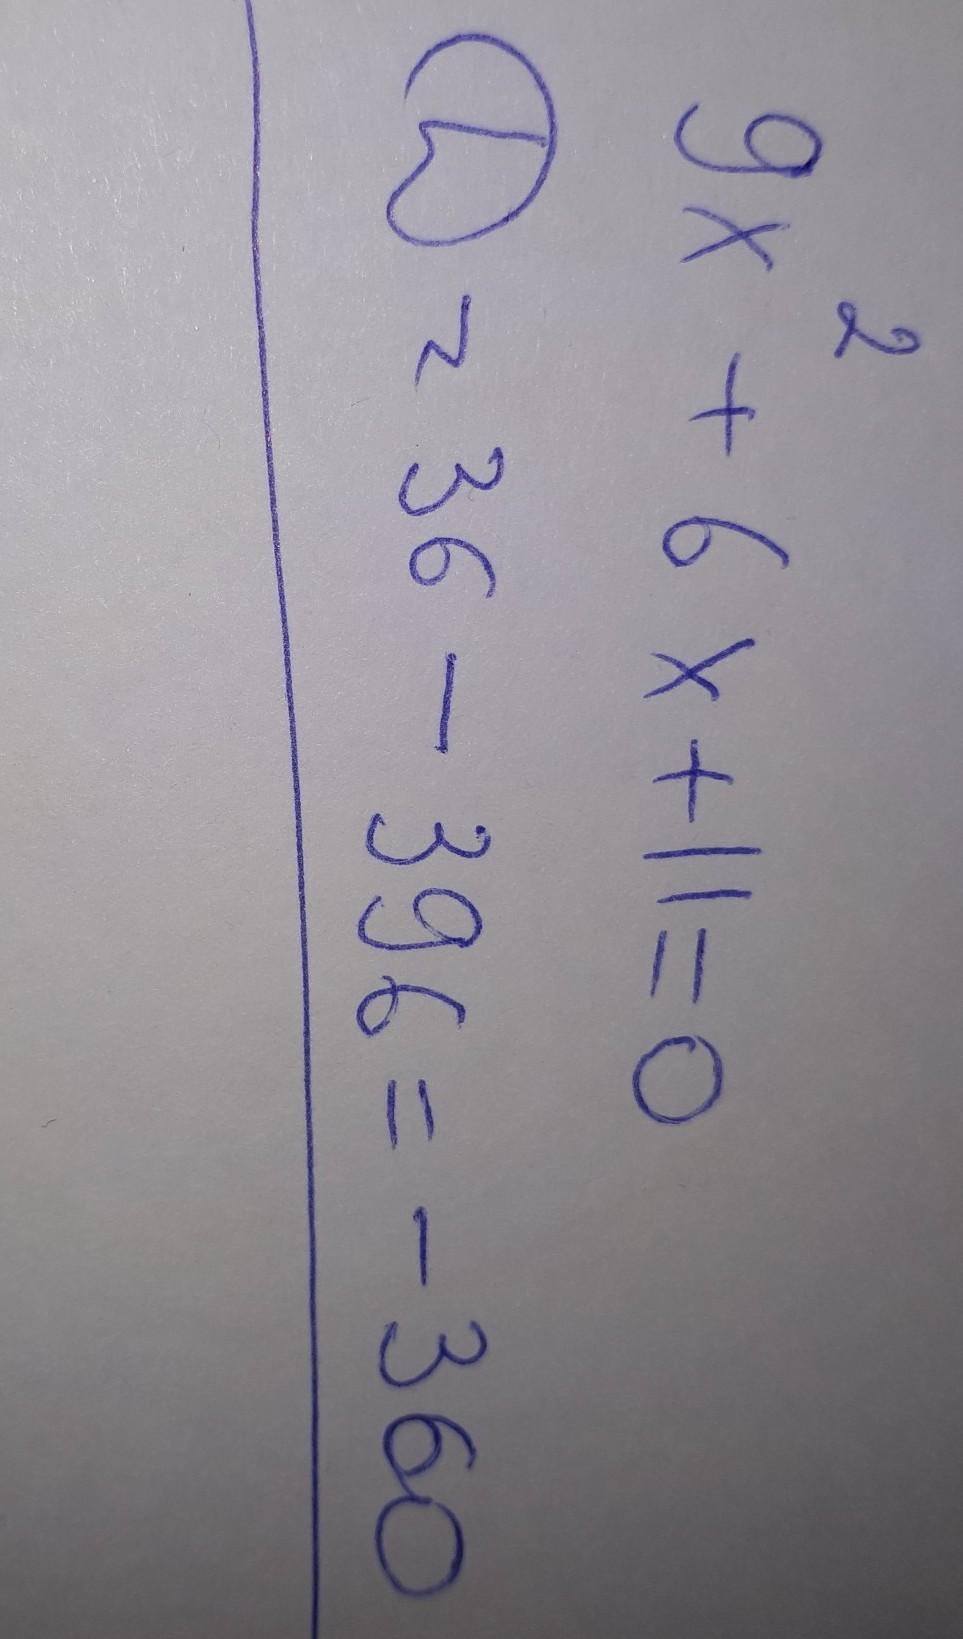 9x² + 6x + 11 = 0
D = 36 - 396 = - 360